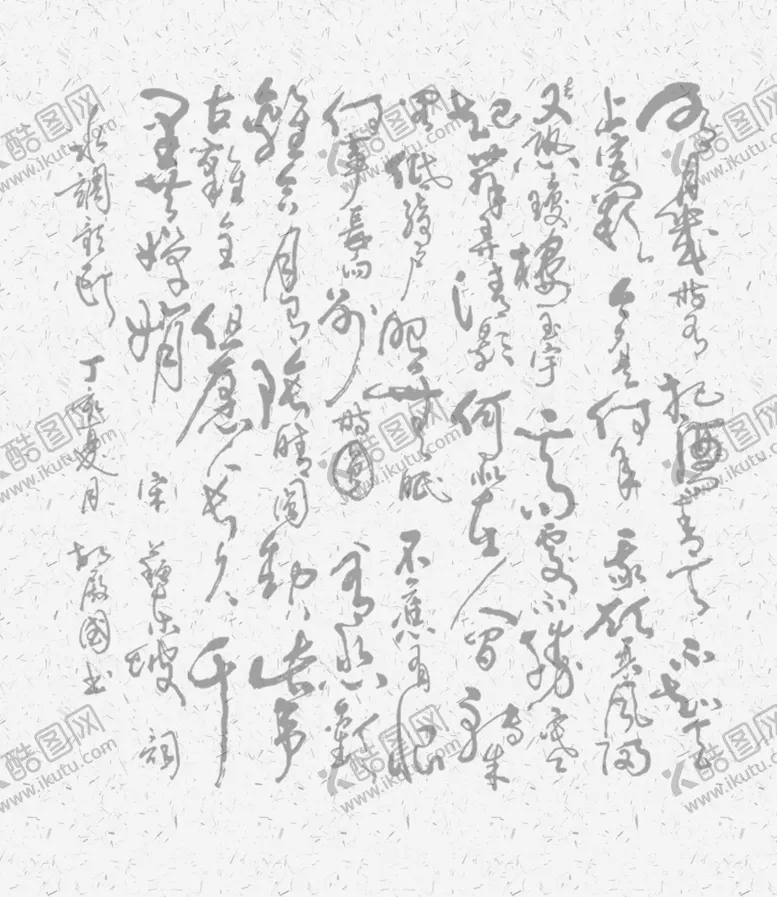 明月幾時有把酒青天不知天
上宮闕今夕是何年我欲乘風歸
又恐瓊樓玉宇高處不勝寒
起舞弄清影何似在人間轉朱
低綺戶照無眠不應有恨
何事長向別時圓人有悲歡
離合月有陰晴圓缺此事
古難全但願人長久千
里共嬋娟 宋 蘇東坡 詞
水調歌頭 丁 月 殿國書
酷图网
www.ikutu.com
酷图网
www.ikutu.com
酷图网
www.ikutu.com
酷图网
www.ikutu.com
酷图网
www.ikutu.com
酷图网
www.ikutu.com
酷图网
www.ikutu.com
酷图网
www.ikutu.com
酷图网
www.ikutu.com